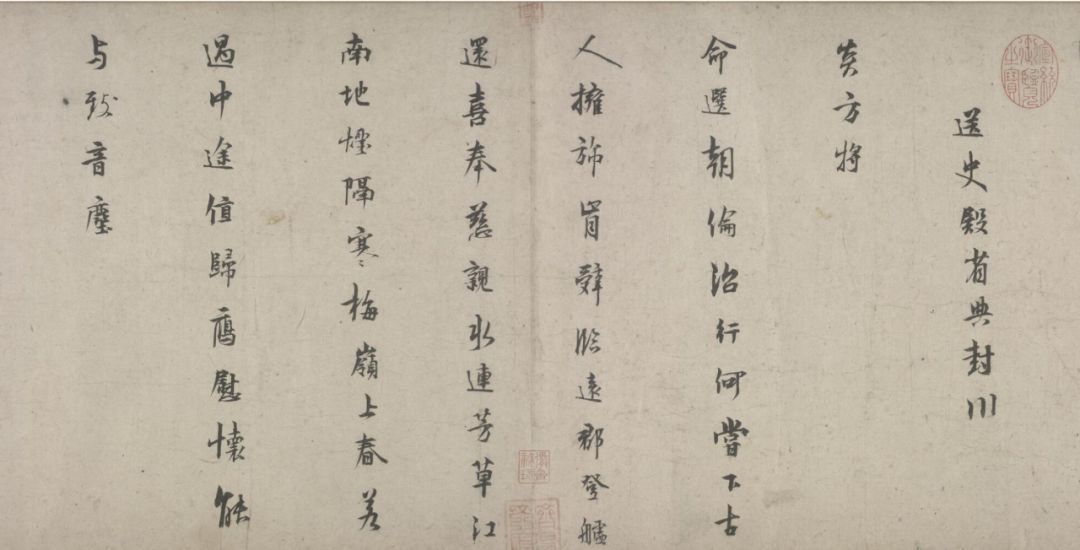 送史殿省典封川
炎方将
命選朝倫治行何嘗下古
人擁旆肯辞臨遠郡登艫
還喜奉慈親水連芳草江
南地煙隔寒梅嶺上春若
過中途值歸鴈慰懷能
与致音塵